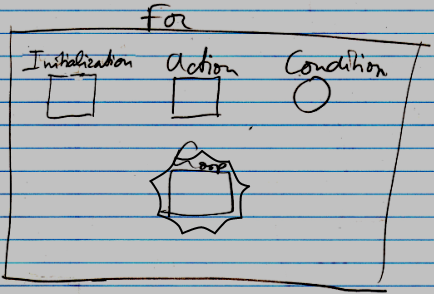 For
Initialization Action Condition
Loop